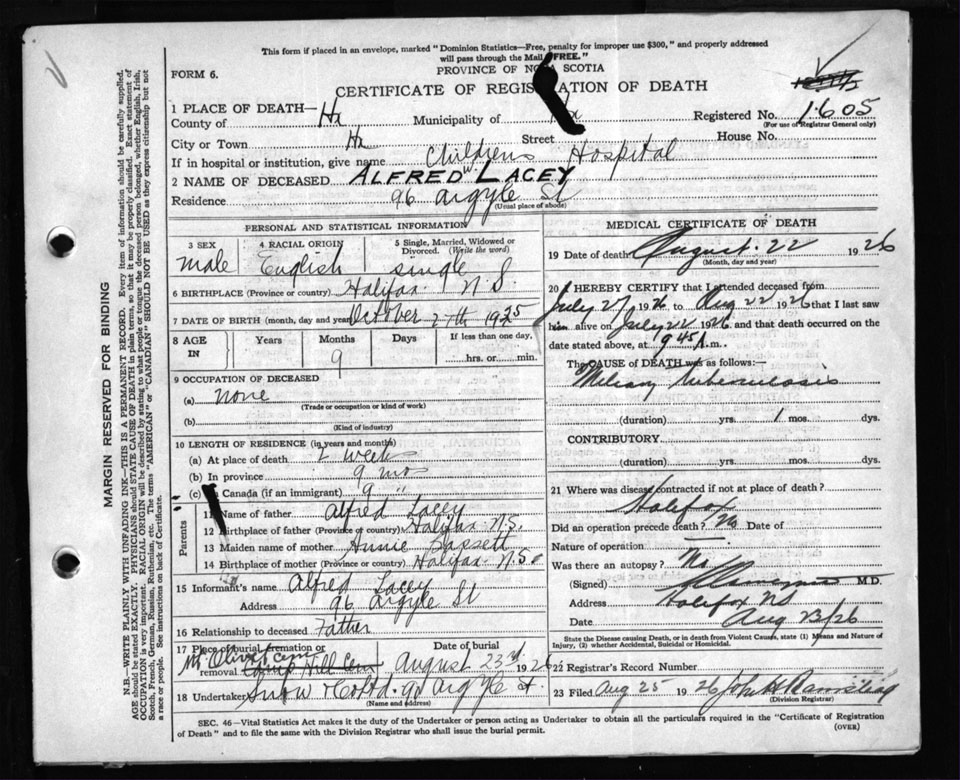 This form if placed in an envelope, marked "Dominion Statistics—Free, penalty for improper use $300," and properly addressed
will pass through the Mail "FREE."
PROVINCE OF NOVA SCOTIA
FORM 6.
CERTIFICATE OF REGISTRATION OF DEATH
1 PLACE OF DEATH—
County of Hx Municipality of Registered No. 1605
(For use of Registrar General only)
City or Town Hx Street House No.
If in hospital or institution, give name Childrens Hospital
2 NAME OF DECEASED ALFRED W LACEY
Residence 96 Argyle St
(Usual place of abode)
PERSONAL AND STATISTICAL INFORMATION
3 SEX 4 RACIAL ORIGIN 5 Single, Married, Widowed or
Divorced. (Write the word)
Male English single
6 BIRTHPLACE (Province or country) Halifax N S.
7 DATE OF BIRTH (month, day and year) October 27th 1925
8 AGE IN Years Months Days If less than one day,
9 hrs. or min.
9 OCCUPATION OF DECEASED
(a) none
(Trade or occupation or kind of work)
(b)
(Kind of industry)
10 LENGTH OF RESIDENCE (in years and months)
(a) At place of death week
(b) In province 9 mo
(c) Canada (if an immigrant) 9 "
Parents
11 Name of father Alfred Lacey
12 Birthplace of father (Province or Country) Halifax N.S.
13 Maiden name of mother Annie Bassett
14 Birthplace of mother (Province or country) Halifax N.S.
15 Informant's name Alfred Lacey
Address 96 Argyle St
16 Relationship to deceased Father
17 Place of burial, cremation or
removal Mt Olivet Cem Camp Hill Cem
Date of burial
August 23rd 1926
18 Undertaker Snow & Co Ltd. 90 Argyle St.
(Name and address)
MEDICAL CERTIFICATE OF DEATH
19 Date of death August 22 1926
(Month, day and year)
20 I HEREBY CERTIFY that I attended deceased from
July 27 1926 to Aug 22 1926 that I last saw
him alive on July 22 1926 and that death occurred on
date stated above, at 1945 .m.
The CAUSE OF DEATH was as follows:
Miliary tuberculosis
(duration) yrs. 1 mos. dys.
CONTRIBUTORY
(duration) yrs. mos. dys.
21 Where was disease contracted if not at place of death?
Halifax
Did an operation precede death? No Date of
Nature of operation —
Was there an autopsy? No
(Signed) M.D.
Address Halifax NS
Date Aug 23/26
State the Disease causing Death, or in death from Violent Causes, state (1) Means and Nature of
Injury, (2) whether Accidental, Suicidal or Homicidal.
22 Registrar's Record Number
23 Filed Aug 25 1926 John H Ramstead
(Division Registrar)
SEC. 46—Vital Statistics Act makes it the duty of the Undertaker or person acting as Undertaker to obtain all the particulars required in the "Certificate of Registration
of Death" and to file the same with the Division Registrar who shall issue the burial permit.
(OVER)
MARGIN RESERVED FOR BINDING
N.B.—WRITE PLAINLY WITH UNFADING INK—THIS IS A PERMANENT RECORD. Every item of information should be carefully supplied.
AGE should be stated EXACTLY. PHYSICIANS should STATE CAUSE OF DEATH in plain terms, so that it may be properly classified. Exact statement of
OCCUPATION is very important. RACIAL ORIGIN will be described by stating to what people or tongue the deceased person belonged, whether English, Irish,
Scotch, French, German, Russian, Ruthenian, etc. The terms "AMERICAN" or "CANADIAN" SHOULD NOT BE USED as they express citizenship but not
a race or people. See instructions on back of Certificate.